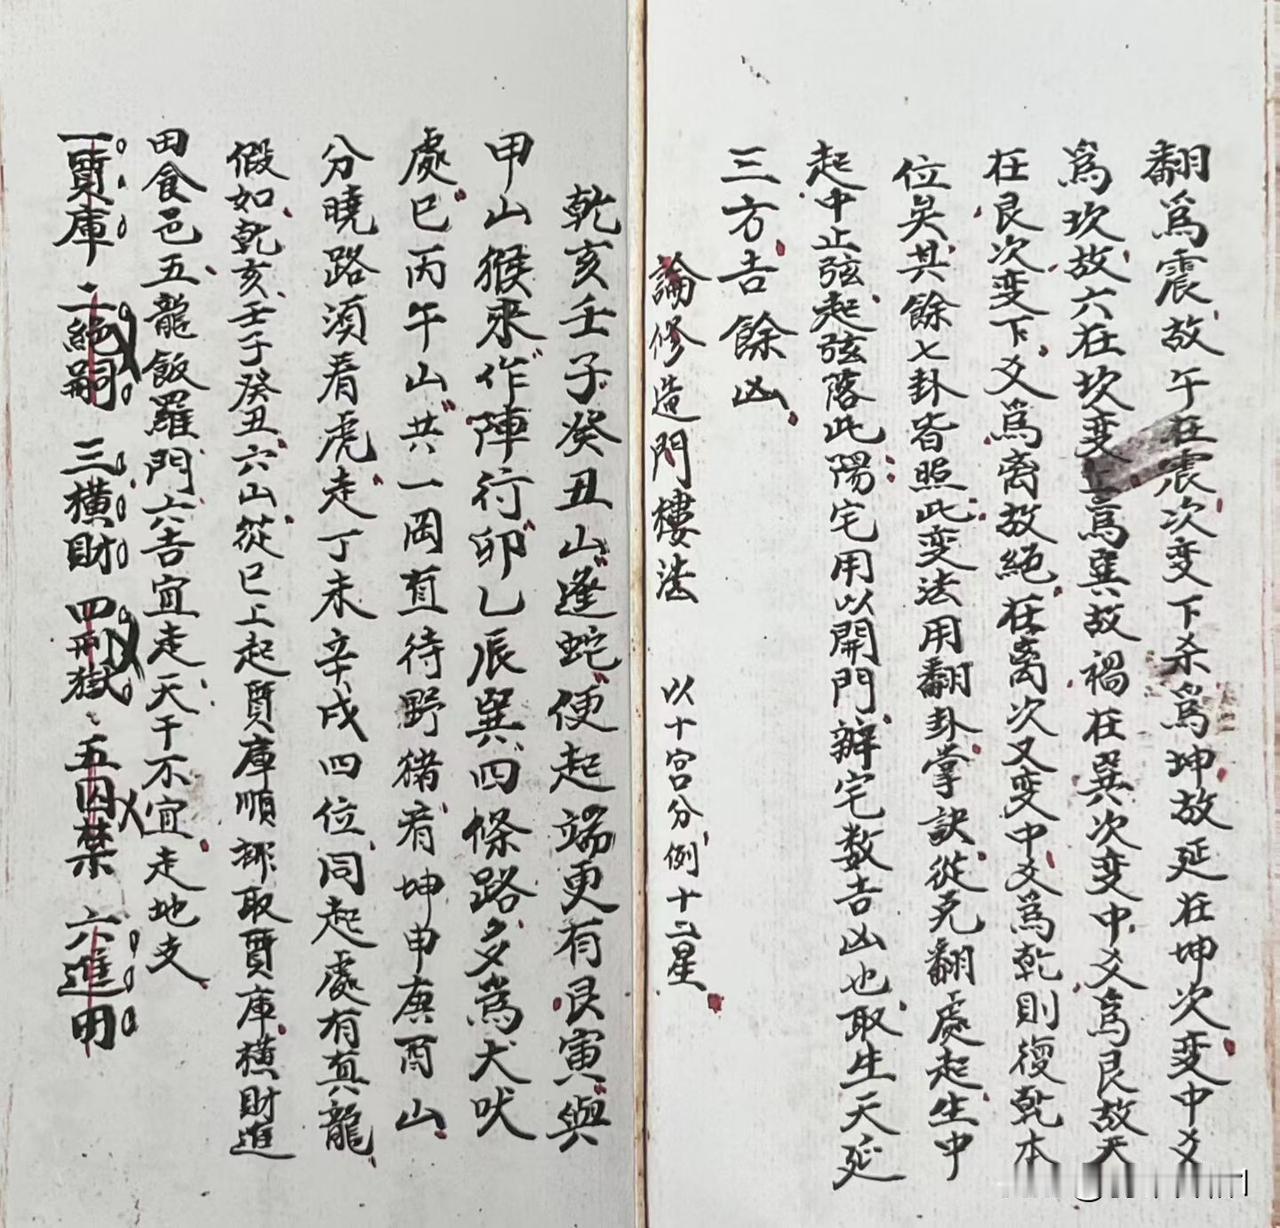 翻爲震故午在震次变下杀爲坤故延在坤次变中爻
爲坎故六在坎变上爲巽故禍在巽次变中爻爲艮故天
在艮次变下爻爲离故絶在离次又变中爻爲乾則復乾本
位矣其餘七卦皆照此变法用翻卦掌訣從克翻處起生中
起中止弦起弦落此陽宅用以開門辦宅数吉凶也取生天延
三方吉餘凶
論修造門樓法 以十宮分例十二星
乾亥壬子癸丑山逢蛇便起端更有艮寅與
甲山猴來作陣行卯乙辰巽四條路夕爲犬吠
處巳丙午山共一岡直待野猪看坤申庚酉山
分曉路須看虎走丁未辛戌四位同起處有真龍
假如乾亥壬子癸丑六山從巳上起賈庫順 取賈庫橫財進
田食邑五龍飯羅門六吉宜走天干不宜走地支
一賈庫二絕嗣三橫財四刑獄五囚禁六進明